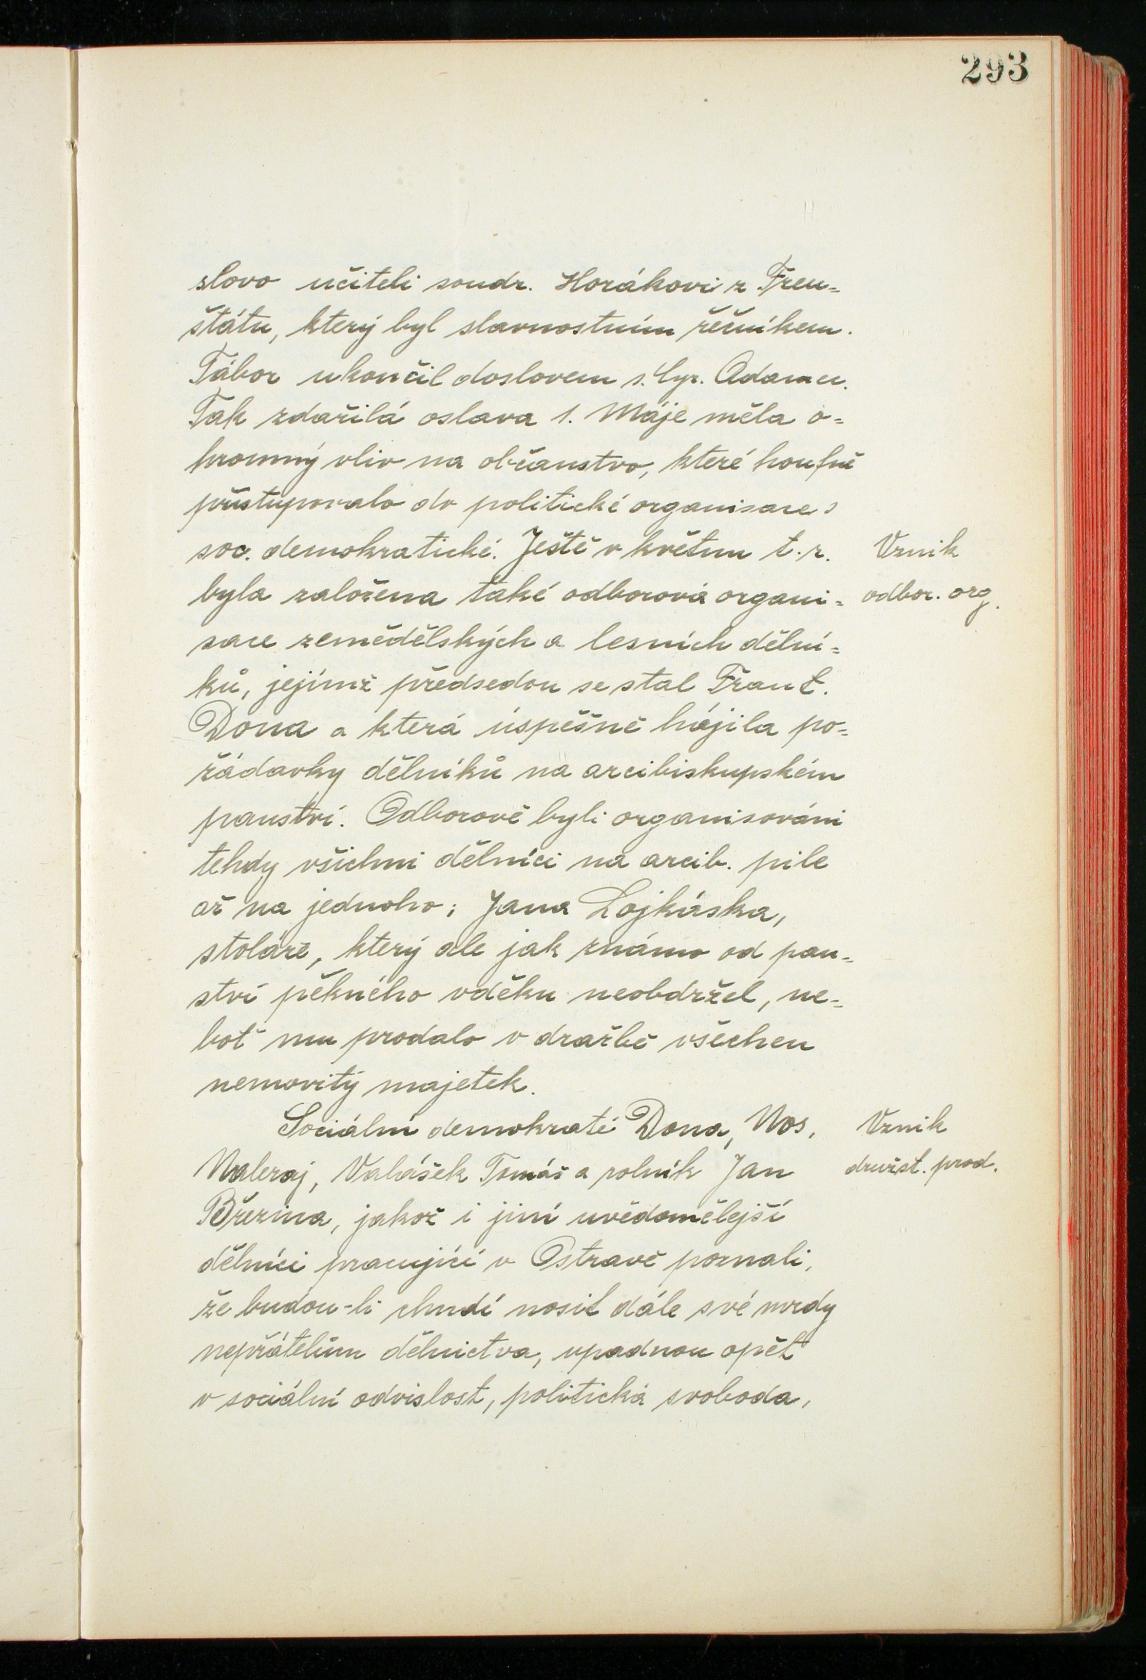 293
slovo učiteli soudr. Horákovi z Fren=
štátu, který byl slavnostním řečníkem.
Tábor ukončil doslovem s. Cyr. Adamec.
Tak zdařilá oslava 1. Máje měla o=
hromný vliv na občanstvo, které houfně
přistupovalo do politické organisace
soc. demokratické. Ještě v květnu t. r.
Vznik
byla založena také odborová organi=
odbor. org.
sace zemědělských a lesních dělní=
ků, jejímž předsedou se stal Frant.
Dona a která úspěšně hájila po=
žádavky dělníků na arcibiskupském
panství. Odborově byli organisováni
tehdy všichni dělníci na arcib. pile
až na jednoho; Jana Lojkáska,
stoláře, který ale jak známo od pan=
ství pěkného vděku neobdržel, ne=
boť mu prodalo v dražbě všechen
nemovitý majetek.
Sociální demokraté Dona, Nos,
Vznik
Maleraj, Valášek Tomáš a rolník Jan
družst. prod.
Březina, jakož i jiní uvědomělejší
dělníci pracující v Ostravě poznali,
že budou-li chudí nosit dále své mzdy
nepřátelům dělnictva, upadnou opět
v sociální odvislost, politická svoboda,